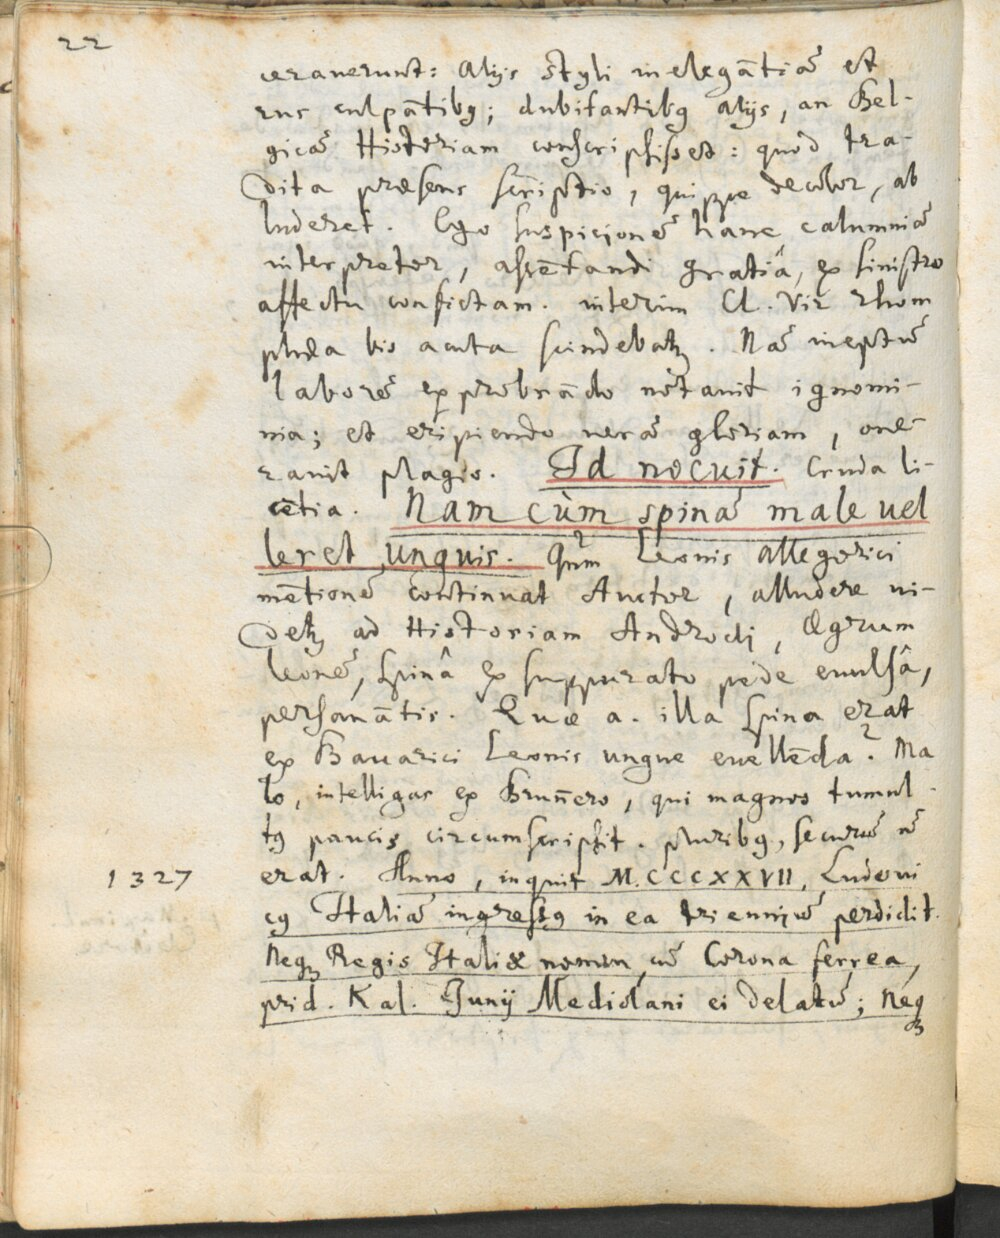 22
uerauerunt: alijs styli inelegātiā et
rus culpātibꝰ; dubitantibꝰ alijs, an Bel-
gicā Historiam conscripsisset: quòd tra-
dita præsens scriptio, quippe decolor, ab
luderet. Ego suspicionē hanc calumniā
interpretor, assētandi gratiâ, ex sinistro
affectu confictam. interim Cl. Vir rhom
phæa bis acuta scindebatꝫ. Nā ineptū
laborē exprobrādo notauit ignomi-
nia; et eripiendo uerā gloriam, one-
rauit plagis. Id nocuit. Cruda li-
cētia. Nam cùm spinā male uel
leret unguis. Qūm Leonis allegorici
mētionē continuat Auctor, alludere ui-
detꝫ ad Historiam Androdi, Ægrum
leonē, spinâ ex suppurato pede euulsâ,
persanātis. Quæ a. illa spina erat
ex Bauarici Leonis ungue euellēda? Ma
lo, intelligas ex Brun̄ero, qui magnos tumul-
tꝰ paucis circumscripsit. pluribꝰ, securū nō
erat. Anno, inquit M.CCCXXVII, Ludoui
1327
cꝰ Italiā ingressꝰ in ea trienniū perdidit.
Neqꝫ Regis Italiæ nomen, cū Corona ferrea,
prid. Kal. Junij Mediolani ei delatū; neqꝫ